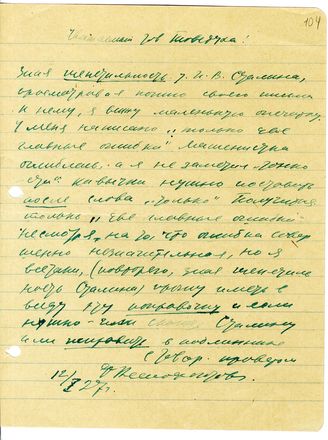 104
Уважаемый тов Товстуха!
Зная щепетильность т. И. В. Сталина,
просмотревая копию своего письма
к нему, я вижу маленькую опечатку.
У меня написано „только две
главные ошибки" машинистка
ошиблась. а я не заметил. Только
две" кавычки нужно поставить
после слова „только" Получится
только „две главные ошибки
Несмотря, на то, что ошибка совер
шенно незначительная, но я
всетаки, (повторяю, зная щепетиль
ность Сталина) прошу иметь в
виду эту поправочку и если
нужно - или Сталину
или исправить в подлиннике
С товар. приветом
27г.